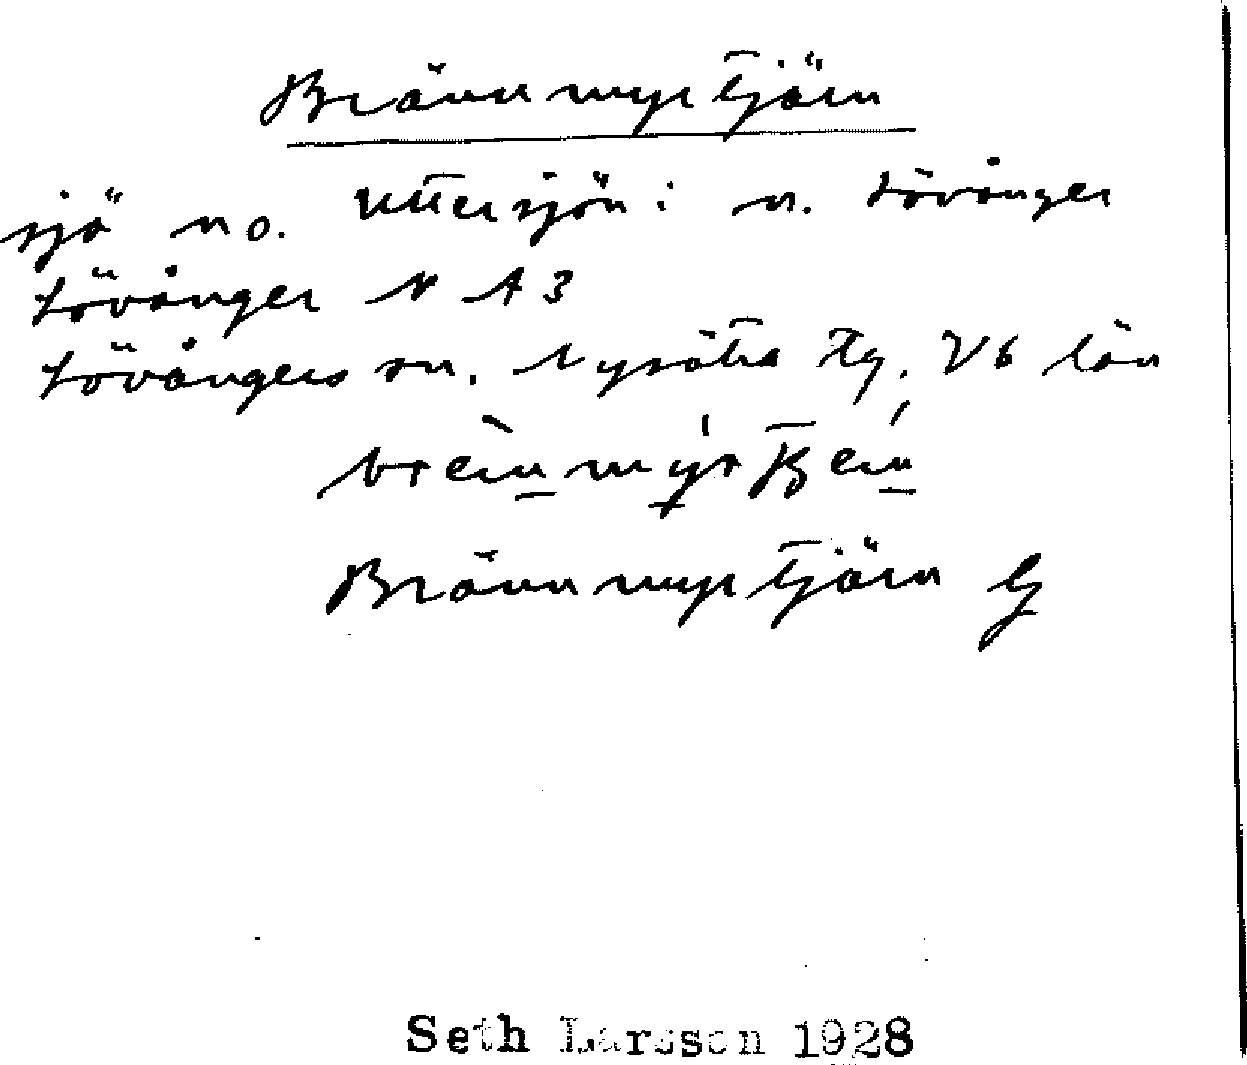 Brännmyrtjärn
sjö no. Uttersjön i n. Lövånger
Lövånger N A 3
Lövångers sn. Nysätra tg. Vb län
Brännmyrtjärn G
Seth Larsson 1928